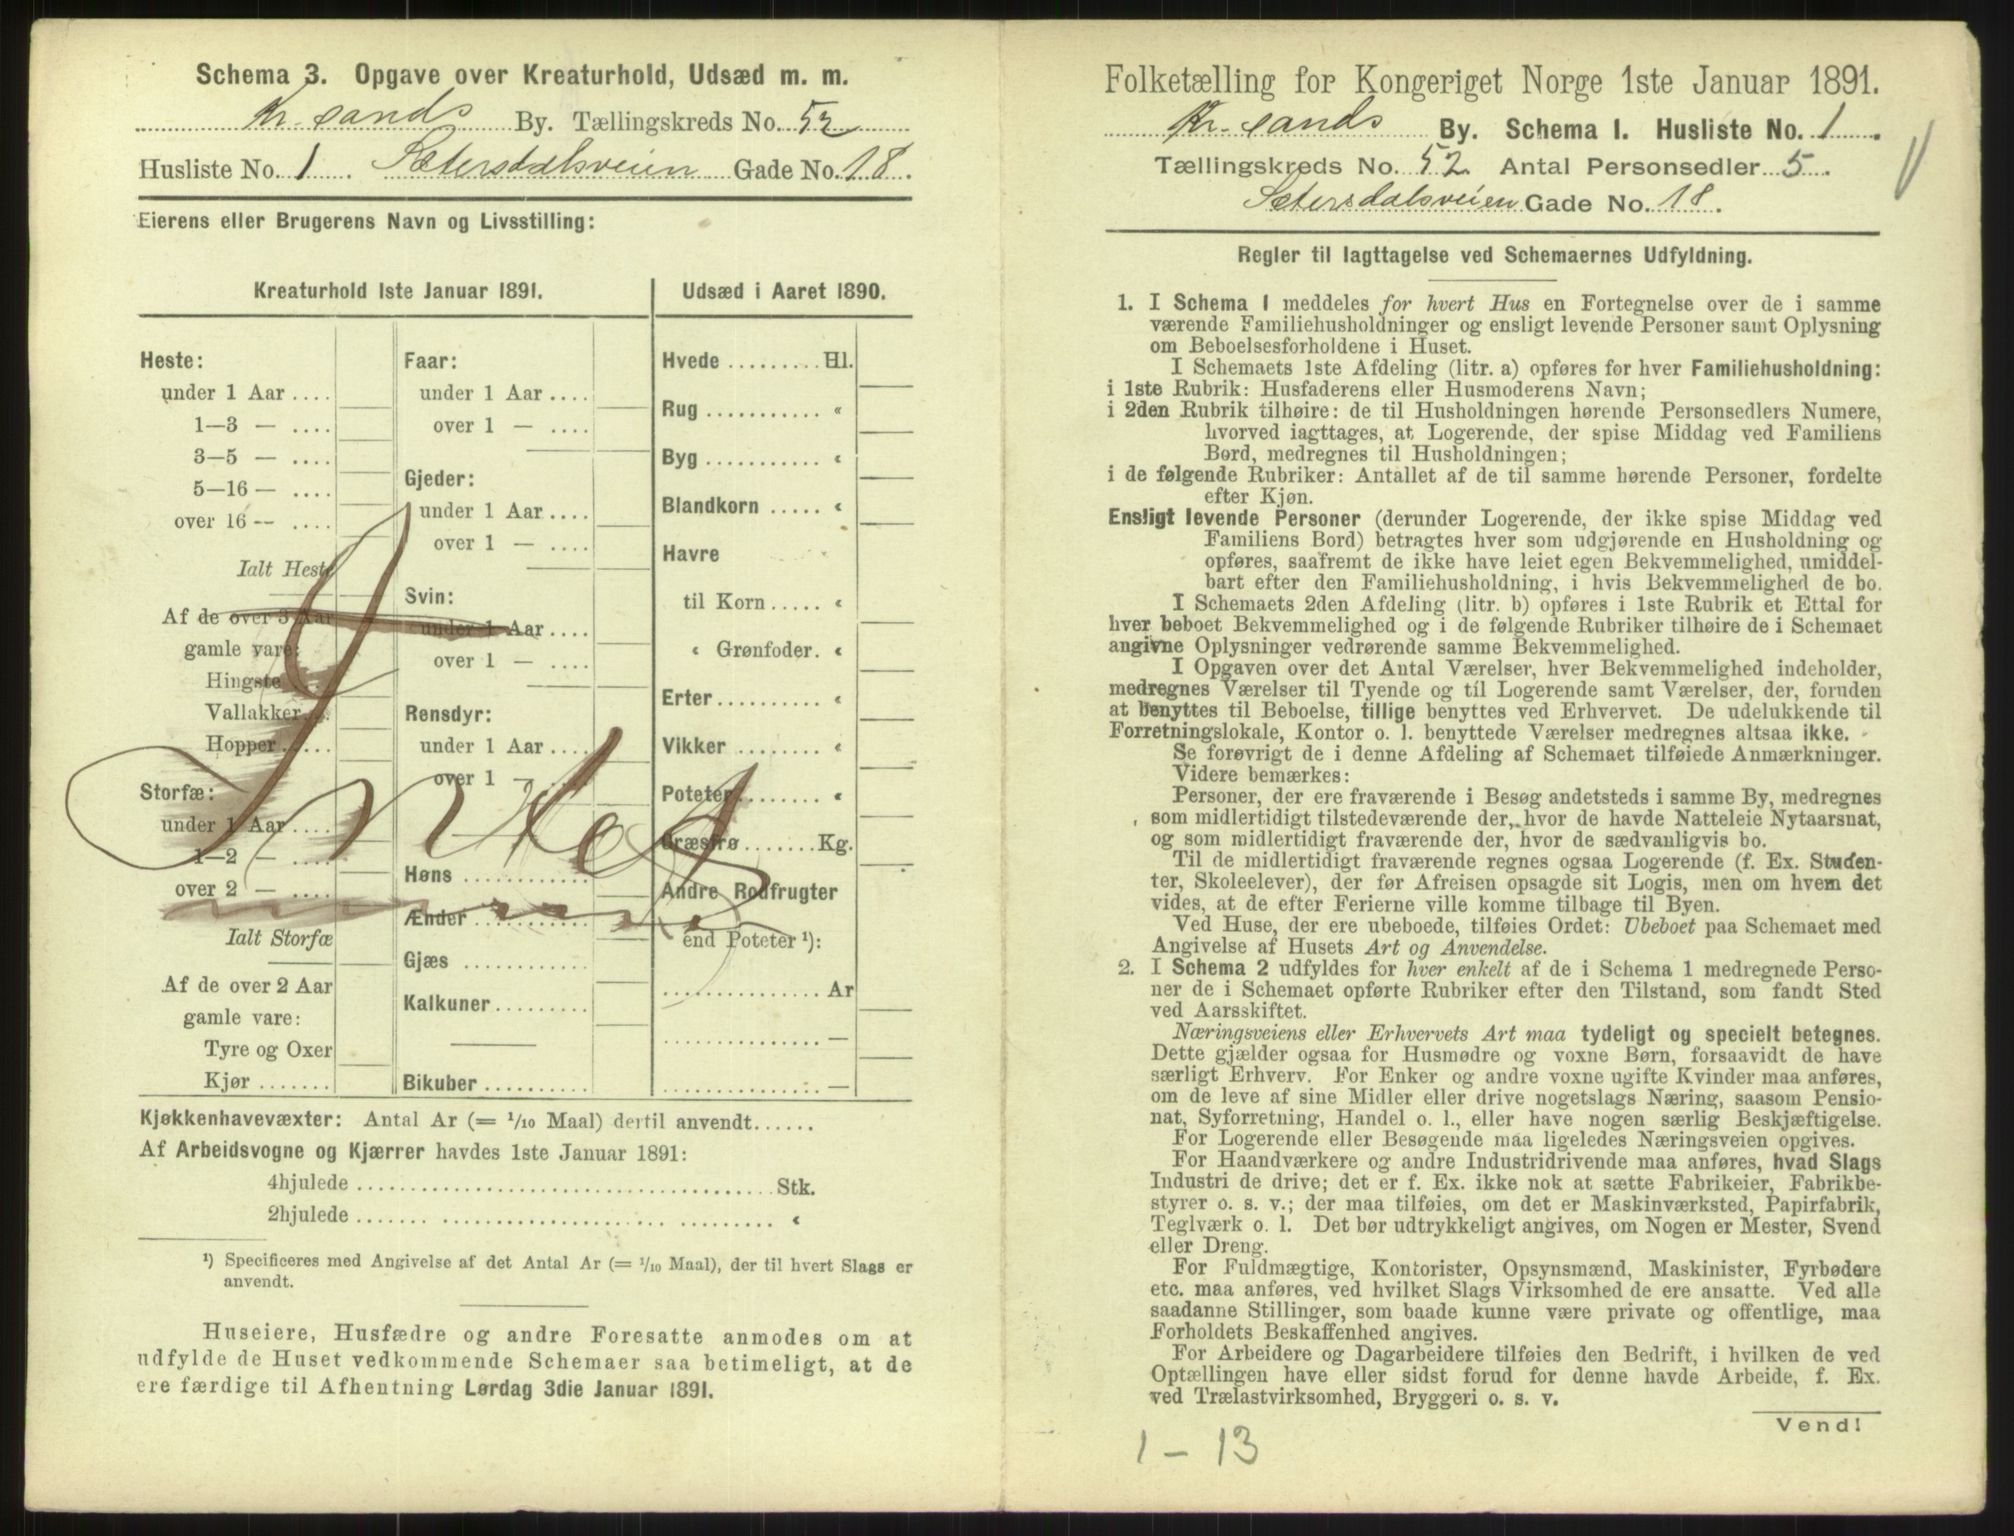 Schema 3. Opgave over Kreaturhold, Udsæd m. m.
Kr. sands By. Tællingskreds No. 52
Husliste No. 1. Sætersdalsveien Gade No. 18.
Eierens eller Brugerens Navn og Livsstilling:
Kreaturhold 1ste Januar 1891.
Heste:
under 1 Aar ....
1—3 — ....
3—5 — ....
5—16 — ....
over 16 — ....
Ialt Heste
Af de over 3 Aar
gamle vare:
Hingste ....
Vallakker..
Hopper.....
Storfæ:
under 1 Aar....
1—2 — ....
over 2 — ....
Ialt Storfæ
Af de over 2 Aar
gamle vare:
Tyre og Oxer
Kjør .......
Faar:
under 1 Aar ....
over 1 — ....
Gjeder:
under 1 Aar ....
over 1 — ....
Svin:
under 1 Aar ....
over 1 — ....
Rensdyr:
under 1 Aar ....
over 1 — ....
Høns ............
Ænder ...........
Gjæs ............
Kalkuner.........
Bikuber..........
Udsæd i Aaret 1890.
Hvede ......... Hl.
Rug ........... «
Byg ........... «
Blandkorn ..... «
Havre
til Korn ..... «
« Grønfoder. «
Erter.......... «
Vikker ........ «
Poteter........ «
Græsfrø ....... Kg.
Andre Rodfrugter
end Poteter ¹):
............... Ar
............... —
............... —
Intet
Kjøkkenhavevæxter: Antal Ar (= 1/10 Maal) dertil anvendt......
Af Arbeidsvogne og Kjærrer havdes 1ste Januar 1891:
4hjulede ........................................ Stk.
2hjulede ........................................ «
¹) Specificeres med Angivelse af det Antal Ar (= 1/10 Maal), der til hvert Slags er
anvendt.
Huseiere, Husfædre og andre Foresatte anmodes om at
udfylde de Huset vedkommende Schemaer saa betimeligt, at de
ere færdige til Afhentning Lørdag 3die Januar 1891.
Folketælling for Kongeriget Norge 1ste Januar 1891.
Kr. sands By. Schema 1. Husliste No. 1.
Tællingskreds No. 52 Antal Personsedler 5.
Sætersdalsveien Gade No. 18.
Regler til Iagttagelse ved Schemaernes Udfyldning.
1. I Schema 1 meddeles for hvert Hus en Fortegnelse over de i samme
værende Familiehusholdninger og ensligt levende Personer samt Oplysning
om Beboelsesforholdene i Huset.
I Schemaets 1ste Afdeling (litr. a) opføres for hver Familiehusholdning:
i 1ste Rubrik: Husfaderens eller Husmoderens Navn;
i 2den Rubrik tilhøire: de til Husholdningen hørende Personsedlers Numere,
hvorved iagttages, at Logerende, der spise Middag ved Familiens
Bord, medregnes til Husholdningen;
i de følgende Rubriker: Antallet af de til samme hørende Personer, fordelte
efter Kjøn.
Ensligt levende Personer (derunder Logerende, der ikke spise Middag ved
Familiens Bord) betragtes hver som udgjørende en Husholdning og
opføres, saafremt de ikke have leiet egen Bekvemmelighed, umiddel-
bart efter den Familiehusholdning, i hvis Bekvemmelighed de bo.
I Schemaets 2den Afdeling (litr. b) opføres i 1ste Rubrik et Ettal for
hver beboet Bekvemmelighed og i de følgende Rubriker tilhøire de i Schemaet
angivne Oplysninger vedrørende samme Bekvemmelighed.
I Opgaven over det Antal Værelser, hver Bekvemmelighed indeholder,
medregnes Værelser til Tyende og til Logerende samt Værelser, der, foruden
at benyttes til Beboelse, tillige benyttes ved Erhvervet. De udelukkende til
Forretningslokale, Kontor o. l. benyttede Værelser medregnes altsaa ikke.
Se forøvrigt de i denne Afdeling af Schemaet tilføiede Anmærkninger.
Videre bemærkes:
Personer, der ere fraværende i Besøg andetsteds i samme By, medregnes
som midlertidigt tilstedeværende der, hvor de havde Natteleie Nytaarsnat,
og som midlertidigt fraværende der, hvor de sædvanligvis bo.
Til de midlertidigt fraværende regnes ogsaa Logerende (f. Ex. Studen-
ter, Skoleelever), der før Afreisen opsagde sit Logis, men om hvem det
vides, at de efter Ferierne ville komme tilbage til Byen.
Ved Huse, der ere ubeboede, tilføies Ordet: Ubeboet paa Schemaet med
Angivelse af Husets Art og Anvendelse.
2. I Schema 2 udfyldes for hver enkelt af de i Schema 1 medregnede Perso-
ner de i Schemaet opførte Rubriker efter den Tilstand, som fandt Sted
ved Aarsskiftet.
Næringsveiens eller Erhvervets Art maa tydeligt og specielt betegnes.
Dette gjælder ogsaa for Husmødre og voxne Børn, forsaavidt de have
særligt Erhverv. For Enker og andre voxne ugifte Kvinder maa anføres,
om de leve af sine Midler eller drive nogetslags Næring, saasom Pensio-
nat, Syforretning, Handel o. l., eller have nogen særlig Beskjæftigelse.
For Logerende eller Besøgende maa ligeledes Næringsveien opgives.
For Haandværkere og andre Industridrivende maa anføres, hvad Slags
Industri de drive; det er f. Ex. ikke nok at sætte Fabrikeier, Fabrikbe-
styrer o. s. v.; der maa tilføies, om det er Maskinværksted, Papirfabrik,
Teglværk o. l. Det bør udtrykkeligt angives, om Nogen er Mester, Svend
eller Dreng.
For Fuldmægtige, Kontorister, Opsynsmænd, Maskinister, Fyrbødere
etc. maa anføres, ved hvilket Slags Virksomhed de ere ansatte. Ved alle
saadanne Stillinger, som baade kunne være private og offentlige, maa
Forholdets Beskaffenhed angives.
For Arbeidere og Dagarbeidere tilføies den Bedrift, i hvilken de ved
Optællingen have eller sidst forud for denne havde Arbeide, f. Ex.
ved Trælastvirksomhed, Bryggeri o. s. v.
Vend!
1 - 13